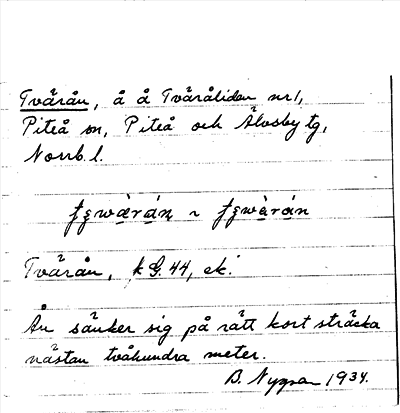 Tvärån, å å Tväråliden nr 1,
Piteå sn, Piteå och Älvsby tg,
Norrb. l.
Tvärån, k G. 44, ek.
Ån sänker sig på rätt kort sträcka
nästan tvåhundra meter.
B. Nygren 1934.